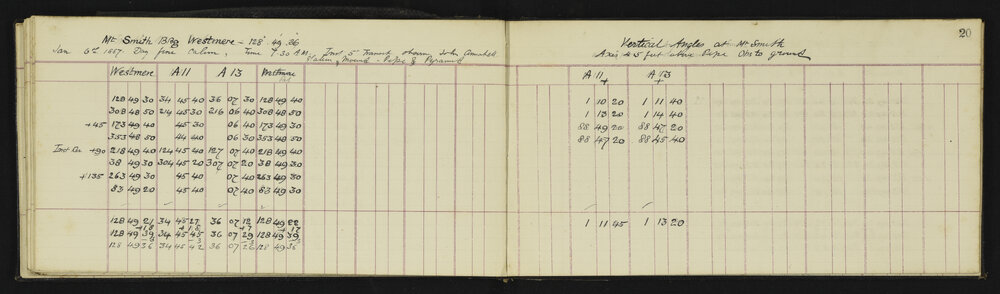 Mt Smith Brg Westmere - 128° 49' 26
Jan 6th 1887. Day fine Calm, Time 7.30 A.M. Inst 5" Transit
Mound - Pipe & Pyramid
Westmere A 11 A 13 Westmere
128 49 30 34 45 40 36 07 30 128 49 40
308 48 50 214 45 30 216 06 40 308 48 50
+45 173 49 40 45 30 06 40 173 49 30
353 48 50 44 40 06 30 353 48 50
+90 218 49 40 124 45 40 127 07 40 218 49 40
38 49 30 304 45 20 307 07 20 38 49 30
+135 263 49 30 45 40 07 40 263 49 30
83 49 20 45 40 07 40 83 49 30
128 49 21 34 45 27 36 07 12 128 49 22
+18 +18 +17 +17
128 49 39 34 45 45 36 07 29 128 49 39
128 49 36 34 45 42 36 07 26 128 49 36
20
Vertical Angles at Mt Smith
Axis 4.5 feet above Pipe Obs to ground
A 11 A 13
+ +
1 10 20 1 11 40
1 13 20 1 14 40
88 49 20 88 47 20
88 47 20 88 45 40
1 11 45 1 13 20